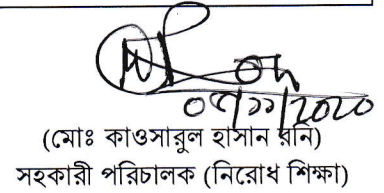 ০৭/১১/2020
(মোঃ কাওসারুল হাসান রনি)
সহকারী পরিচালক (নিরোধ শিক্ষা)